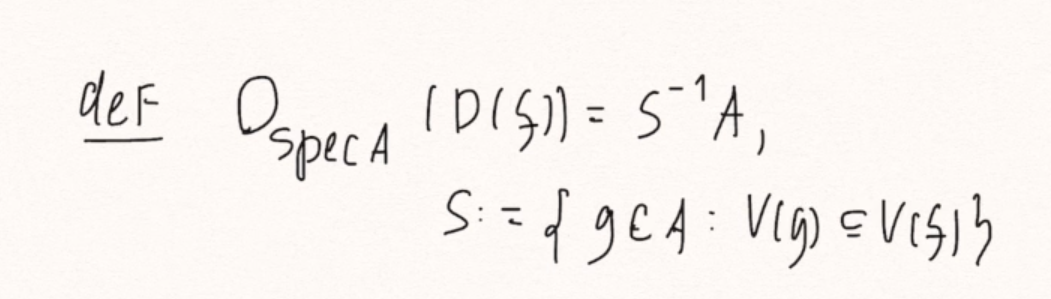 def O_{Spec A} (D(f)) = S^{-1}A,
S := { g ∈ A : V(g) ⊆ V(f) }